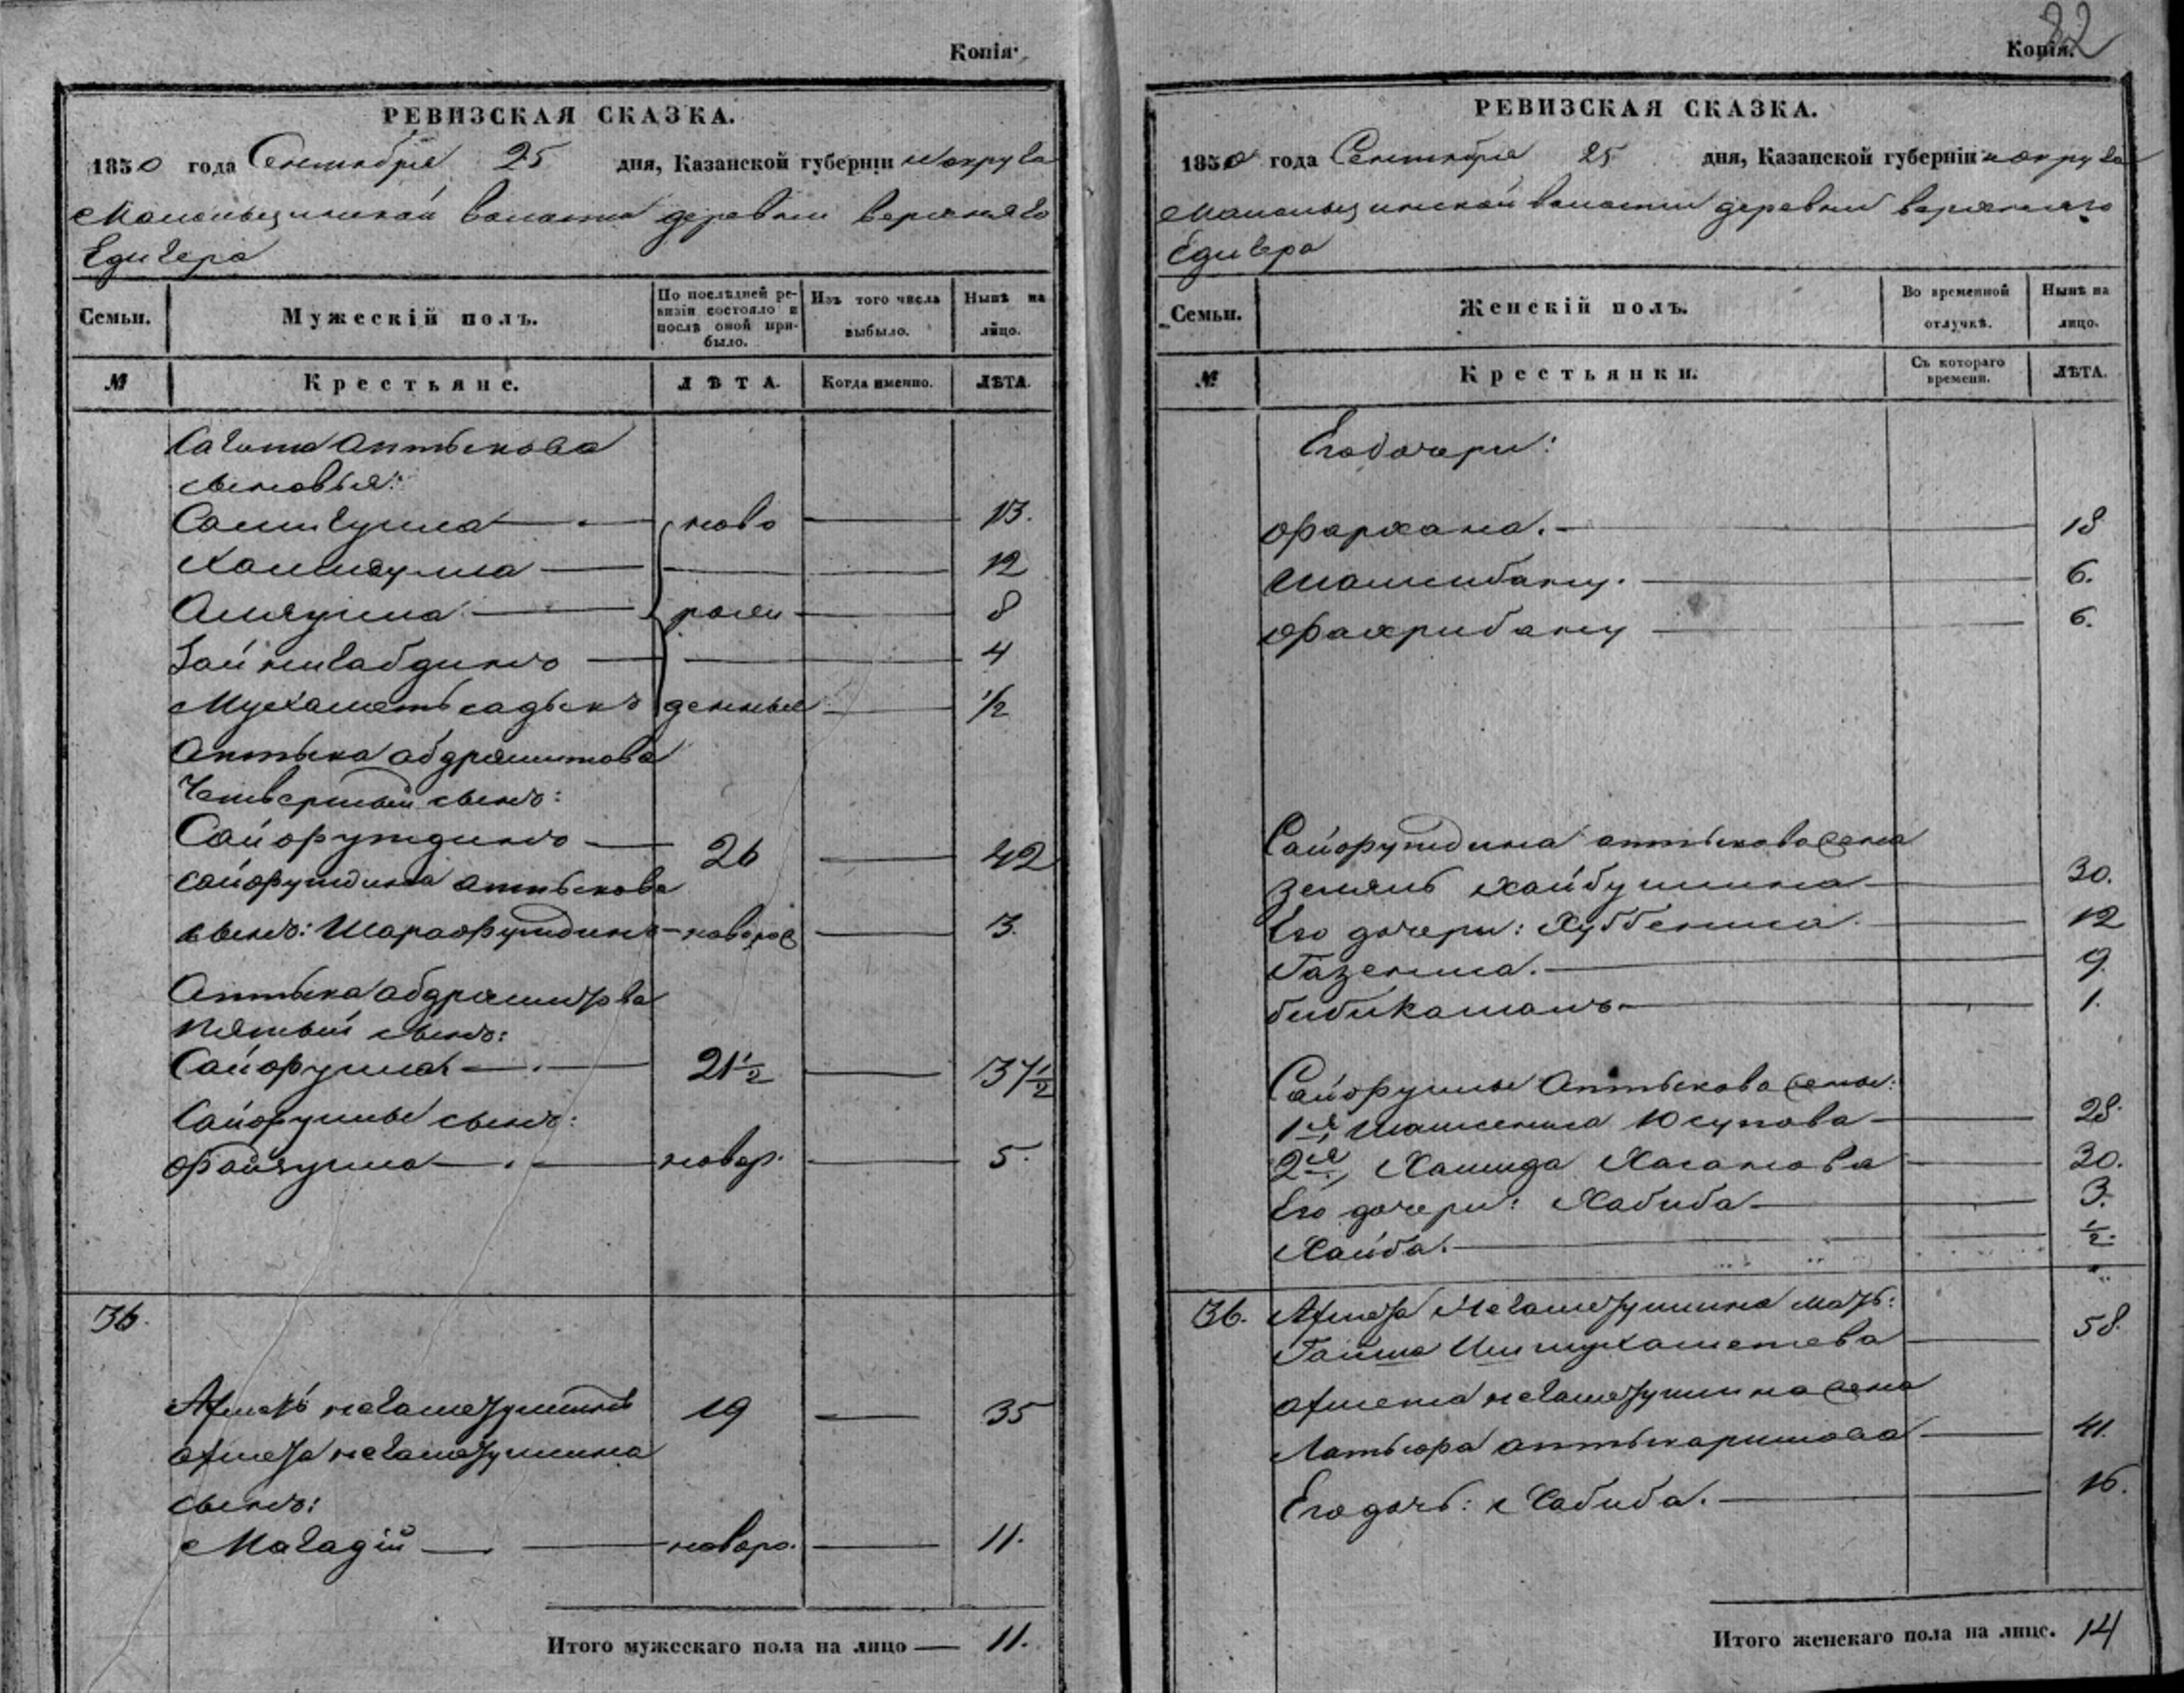 Копія.
РЕВИЗСКАЯ СКАЗКА.
1850 года Сентября 25 дня, Казанской губерніи и округа
волости деревни верхняго
Едигера
Семьи. Мужескій полъ. По послѣдней ревизіи состояло и послѣ оной прибыло. Изъ того числа выбыло. Нынѣ на лицо.
№ Крестьяне. ЛѢТА. Когда именно. ЛѢТА.
Сагита Аптыкова
сыновья:
Самигулла ново 13.
Хамидулла 12
Амядулла рож 8
Зайнигабдинъ 4
Мухаметьсадыкъ денные 1/2
Аптыка абдрашитова
Четвертый сынъ:
Сайфутдинъ 26 42
Сайфутдина аптыкова
сынъ: Шарафутдинъ новорож 3.
Аптыка абдрашитова
пятый сынъ:
Сайфулла 21 1/2 37 1/2
Сайфуллы сынъ:
Файзулла новор. 5.
36.
Ахметъ негаметуллинъ 19 35
Ахмета негаметуллина
сынъ:
Магадій новоро. 11.
Итого мужескаго пола на лицо — 11.
82
Копія.
РЕВИЗСКАЯ СКАЗКА.
1850 года Сентября 25 дня, Казанской губерніи и округа
волости деревни верхняго
Едигера
Семьи. Женскій полъ. Во временной отлучкѣ. Нынѣ на лицо.
№ Крестьянки. Съ котораго времени. ЛѢТА.
Его дочери:
Фархана. 18
Шамсибану. 6.
Фахрибану 6.
Сайфутдина аптыкова жена
хайбуллина 30.
Его дочери: Хуббениса. 12
Газениса. 9.
бибикамалъ 1.
Сайфуллы Аптыкова жены:
1я, Шамсениса Юсупова 28.
2я, Хамида Хасанова 30.
Его дочери: Хабиба 3.
Хайба. 1/2.
36. Ахмета Негаметуллина мать:
Гайша Ишмухаметева 58.
Ахмета негаметуллина жена
Латыфа 41.
Его дочь: Хабиба. 16.
Итого женскаго пола на лице. 14